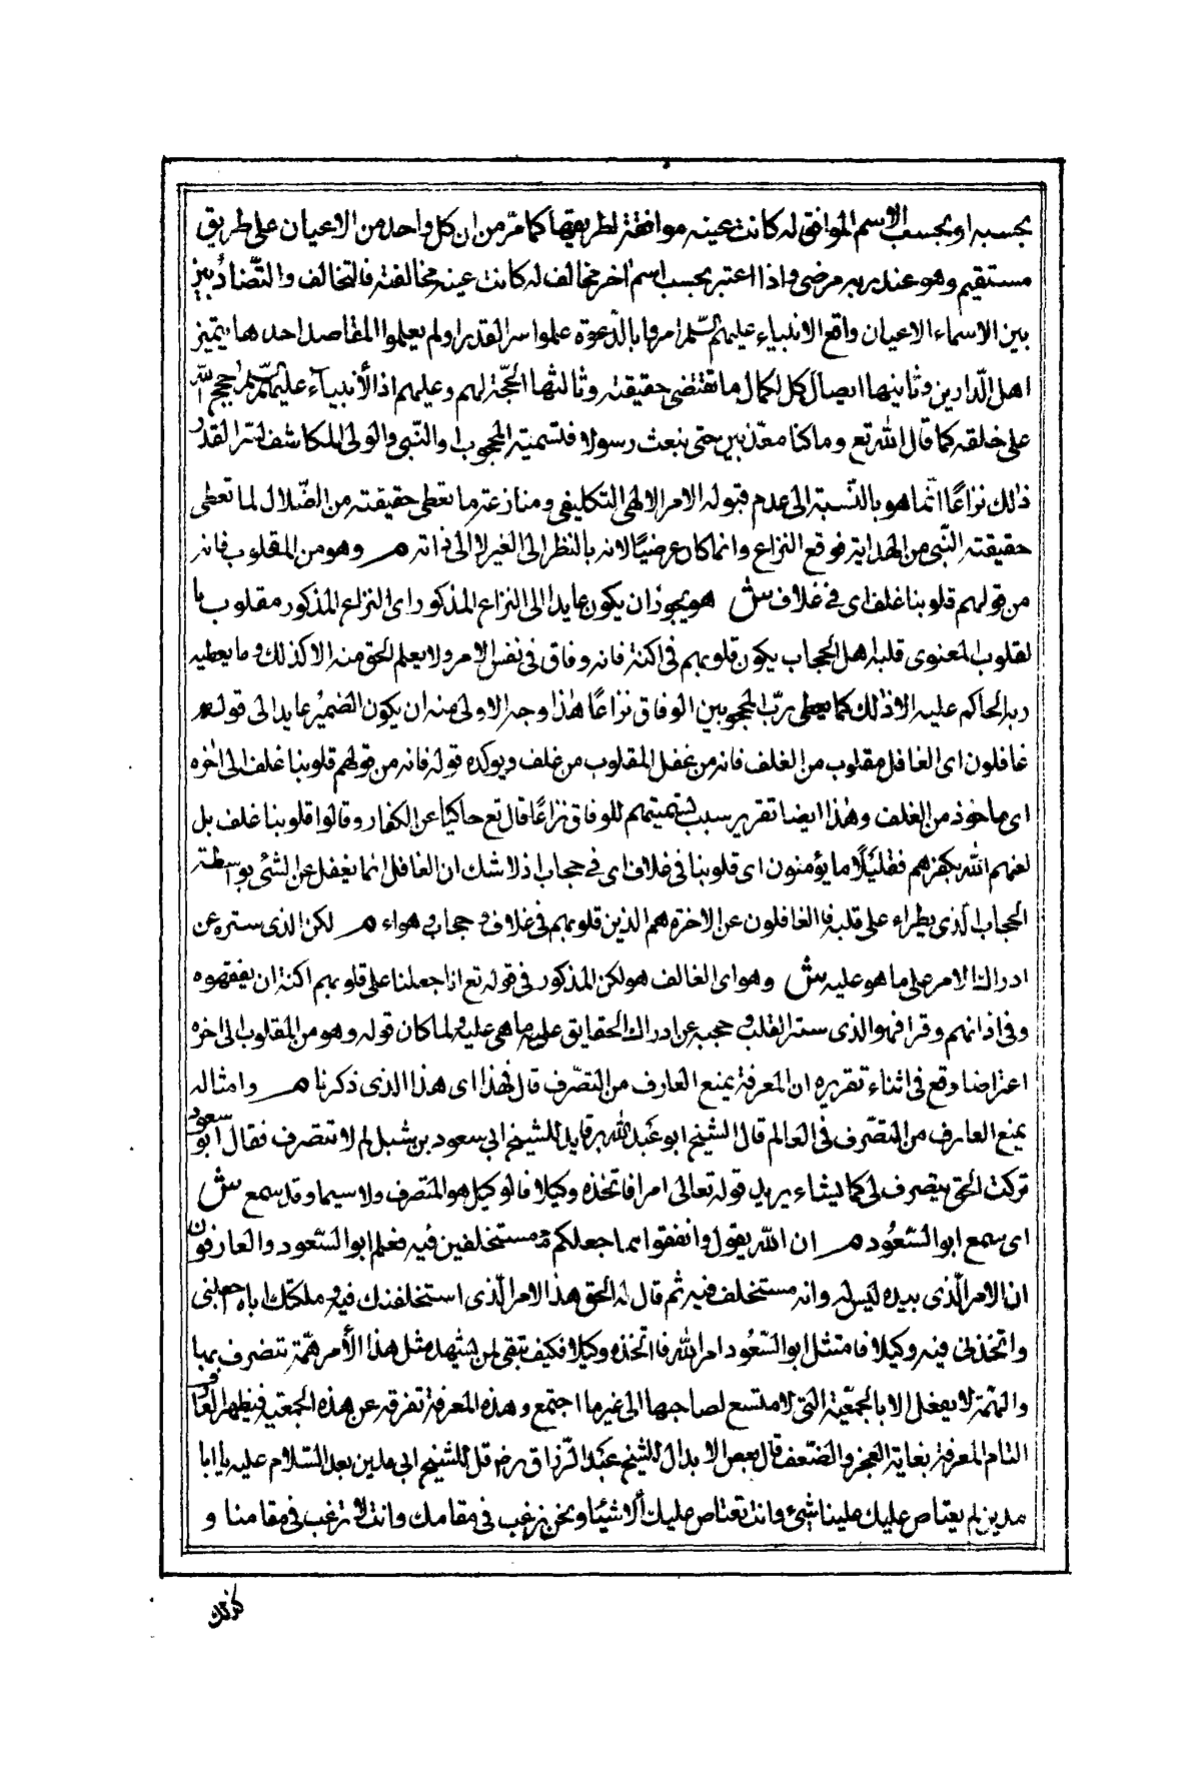 بحسبه او بحسب الاسم الموافق له كانت عينه موافقة لطريقها كما مرّ من ان كل واحد من الاعيان على طريق
مستقيم وهو عند ربه مرضى واذا اعتبر بحسب اسم اخر مخالف له كانت عينه مخالفته فالتخالف والتّضاد بين
بين الاسماء الاعيان واقع الانبياء عليهم السّلم امروا بالدّعوة علموا سر القدر او لم يعلموا المقاصد احدها يتميز
اهل الدّارين وثانيها ايصال كل لكمال ما تقتضى حقيقته وثالثها الحجّة لهم وعليهم اذ الأنبيآء عليهم السّلم حجج الله
على خلقه كما قال الله تع وما كنا معذّبين حتى نبعث رسولا فتسمية المحجوب والنّبى والولى المكاشف لسر القدر
ذلك نزاعًا انّما هو بالنّسبة الى عدم قبوله الامر الالهى التكليفى ومنازعة ما تعطى حقيقته من الضّلال لما تعطى
حقيقته النّبى من الهداية فوقع النزاع وانما كان عرضيًا لانه بالنظر الى الغير لا الى ذاته هـ وهو من المقلوب فانه
من قولهم قلوبنا غلف اى فى غلاف ش هو يجوز ان يكون عايدا الى النزاع المذكور اى النزاع المذكور مقلوب با
لقلوب المعنوى قلبه اهل الحجاب يكون قلوبهم فى اكنة فانه وفاق فى نفس الامر ولا يعلم الحق منه الا كذلك وما يعطيه
ربه الحاكم عليه الا ذلك كما يعطى ربّ المحجوبين الوفاق نزاعًا هذا وجه الاولى منه ان يكون الضميُر عايدا الى قوله هم
غافلون اى الغافل مقلوب من الغلف فانه من غفل المقلوب من غلف ويوكده قوله فانه من قولهم قلوبنا غلف الى اخره
اى ماخوذ من الغلف وهذا ايضا تقرير سبب تسميتهم للوفاق نزاعًا قال تع حاكيًا عن الكفار وقالوا قلوبنا غلف بل
لعنهم الله بكفرهم فقليلًا ما يؤمنون اى قلوبنا فى غلاف اى فى حجاب اذ لا شك ان الغافل انما يغفل عن الشئى بواسطته
الحجاب الّذى يطراء على قلبه فالغافلون عن الاخرة هم الذين قلوبهم فى غلاف و حجاب وهواء هـ لكن الذى ستره عن
ادراك الامر على ما هو عليه ش وهو اى الغالف هو لكن المذكور فى قوله تع انا جعلنا على قلوبهم اكنة ان يفقهوه
وفى اذانهم وقرا فهو الذى ستر القلب و حجبه عن ادراك الحقايق على ما هى عليه ولما كان قوله وهو من المقلوب الى اخره
اعتراضا وقع فى اثناء تقريره ان المعرفة يمنع العارف من التصّرف قال فهذا اى هذا الذى ذكرنا هـ وامثاله
يمنع العارف من التصّرف فى العالم قال الشيخ ابو عَبد الله بن قايد للشيخ ابى سعود بن شبل لم لا تتصرف فقال ابو سعود
تركت الحق يتصرف لى كما يشاء يريد قوله تعالى امرا فاتخذه وكيلا فالوكيل هو المتصرف ولا سيما وقد سمع ش
اى سمع ابو السّعُود هـ ان الله يقول وانفقوا مما جعلكم مستخلفين فيه فعلم ابو السّعود والعارفون
ان الامر الّذى بيده ليس له وانه مستخلف فيه ثم قال له الحق هذا الامر الّذى استخلفتك فيه وملكتك اياه اجعلنى
واتخذنى فيه وكيلا فامتثل ابو السّعُود امر الله فاتخذه وكيلا فكيف تبقى لمن يشهد مثل هذا الأمر همّة تتصرف بها
والهّمة لا يفعل الا بالجمعّية التى لا متسع لصاحبها الى غير ما اجتمع وهذه المعرفة تفرقه عن هذه الجمعّية فيظهر العارف
التام المعرفة بغاية العجز والضعف قال بعض الابدال للشيخ عبَد الّرزاق رض قل للشيخ ابى مدين بعد السّلام عليه يا ابا
مدين لم يعتاص عليك علينا شئ وانت تعتاص عليك ألاشيئا ونحن نرغب فى مقامك وانت لا ترغب فى مقامنا و
كذلك